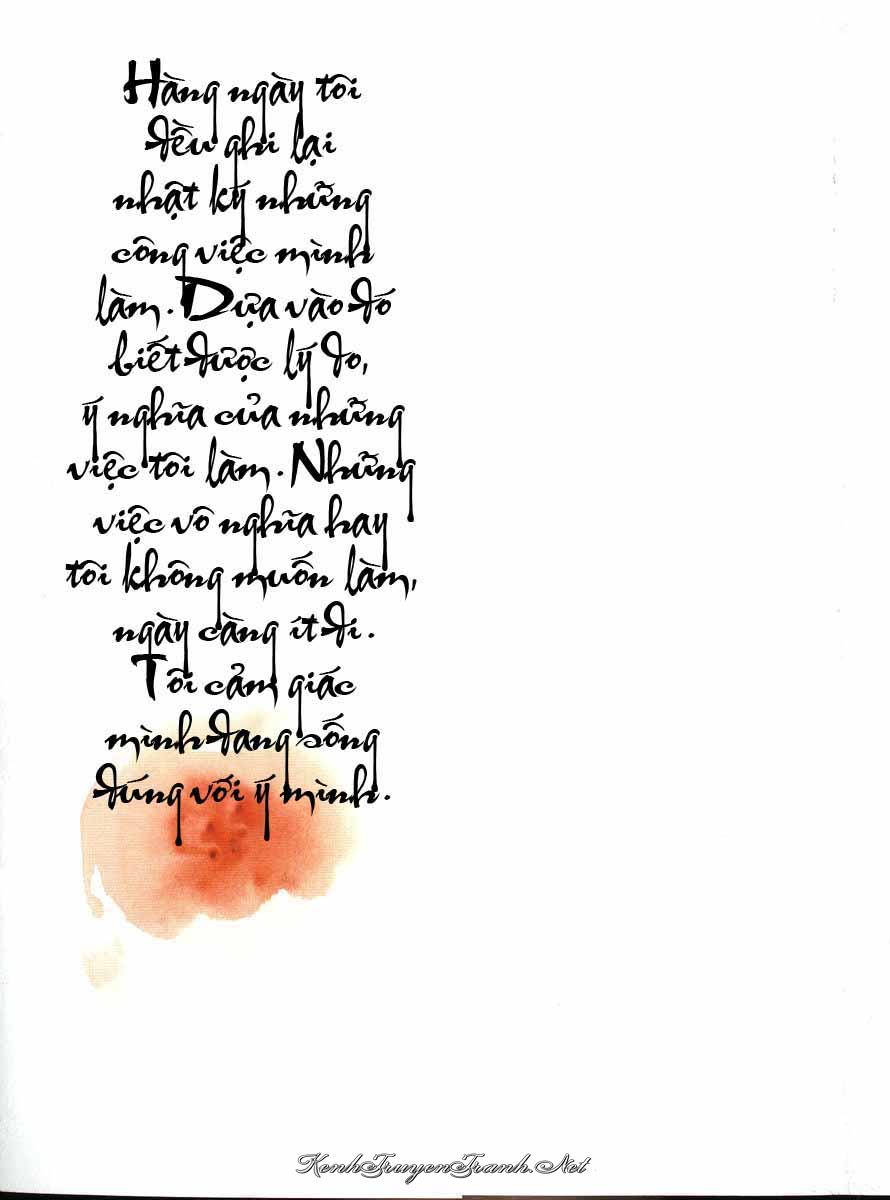 Hàng ngày tôi
đều ghi lại
nhật ký những
công việc mình
làm. Dựa vào đó
biết được lý do,
ý nghĩa của những
việc tôi làm. Những
việc vô nghĩa hay
tôi không muốn làm,
ngày càng ít đi.
Tôi cảm giác
mình đang sống
đúng với ý mình.
KenhTruyenTranh.Net